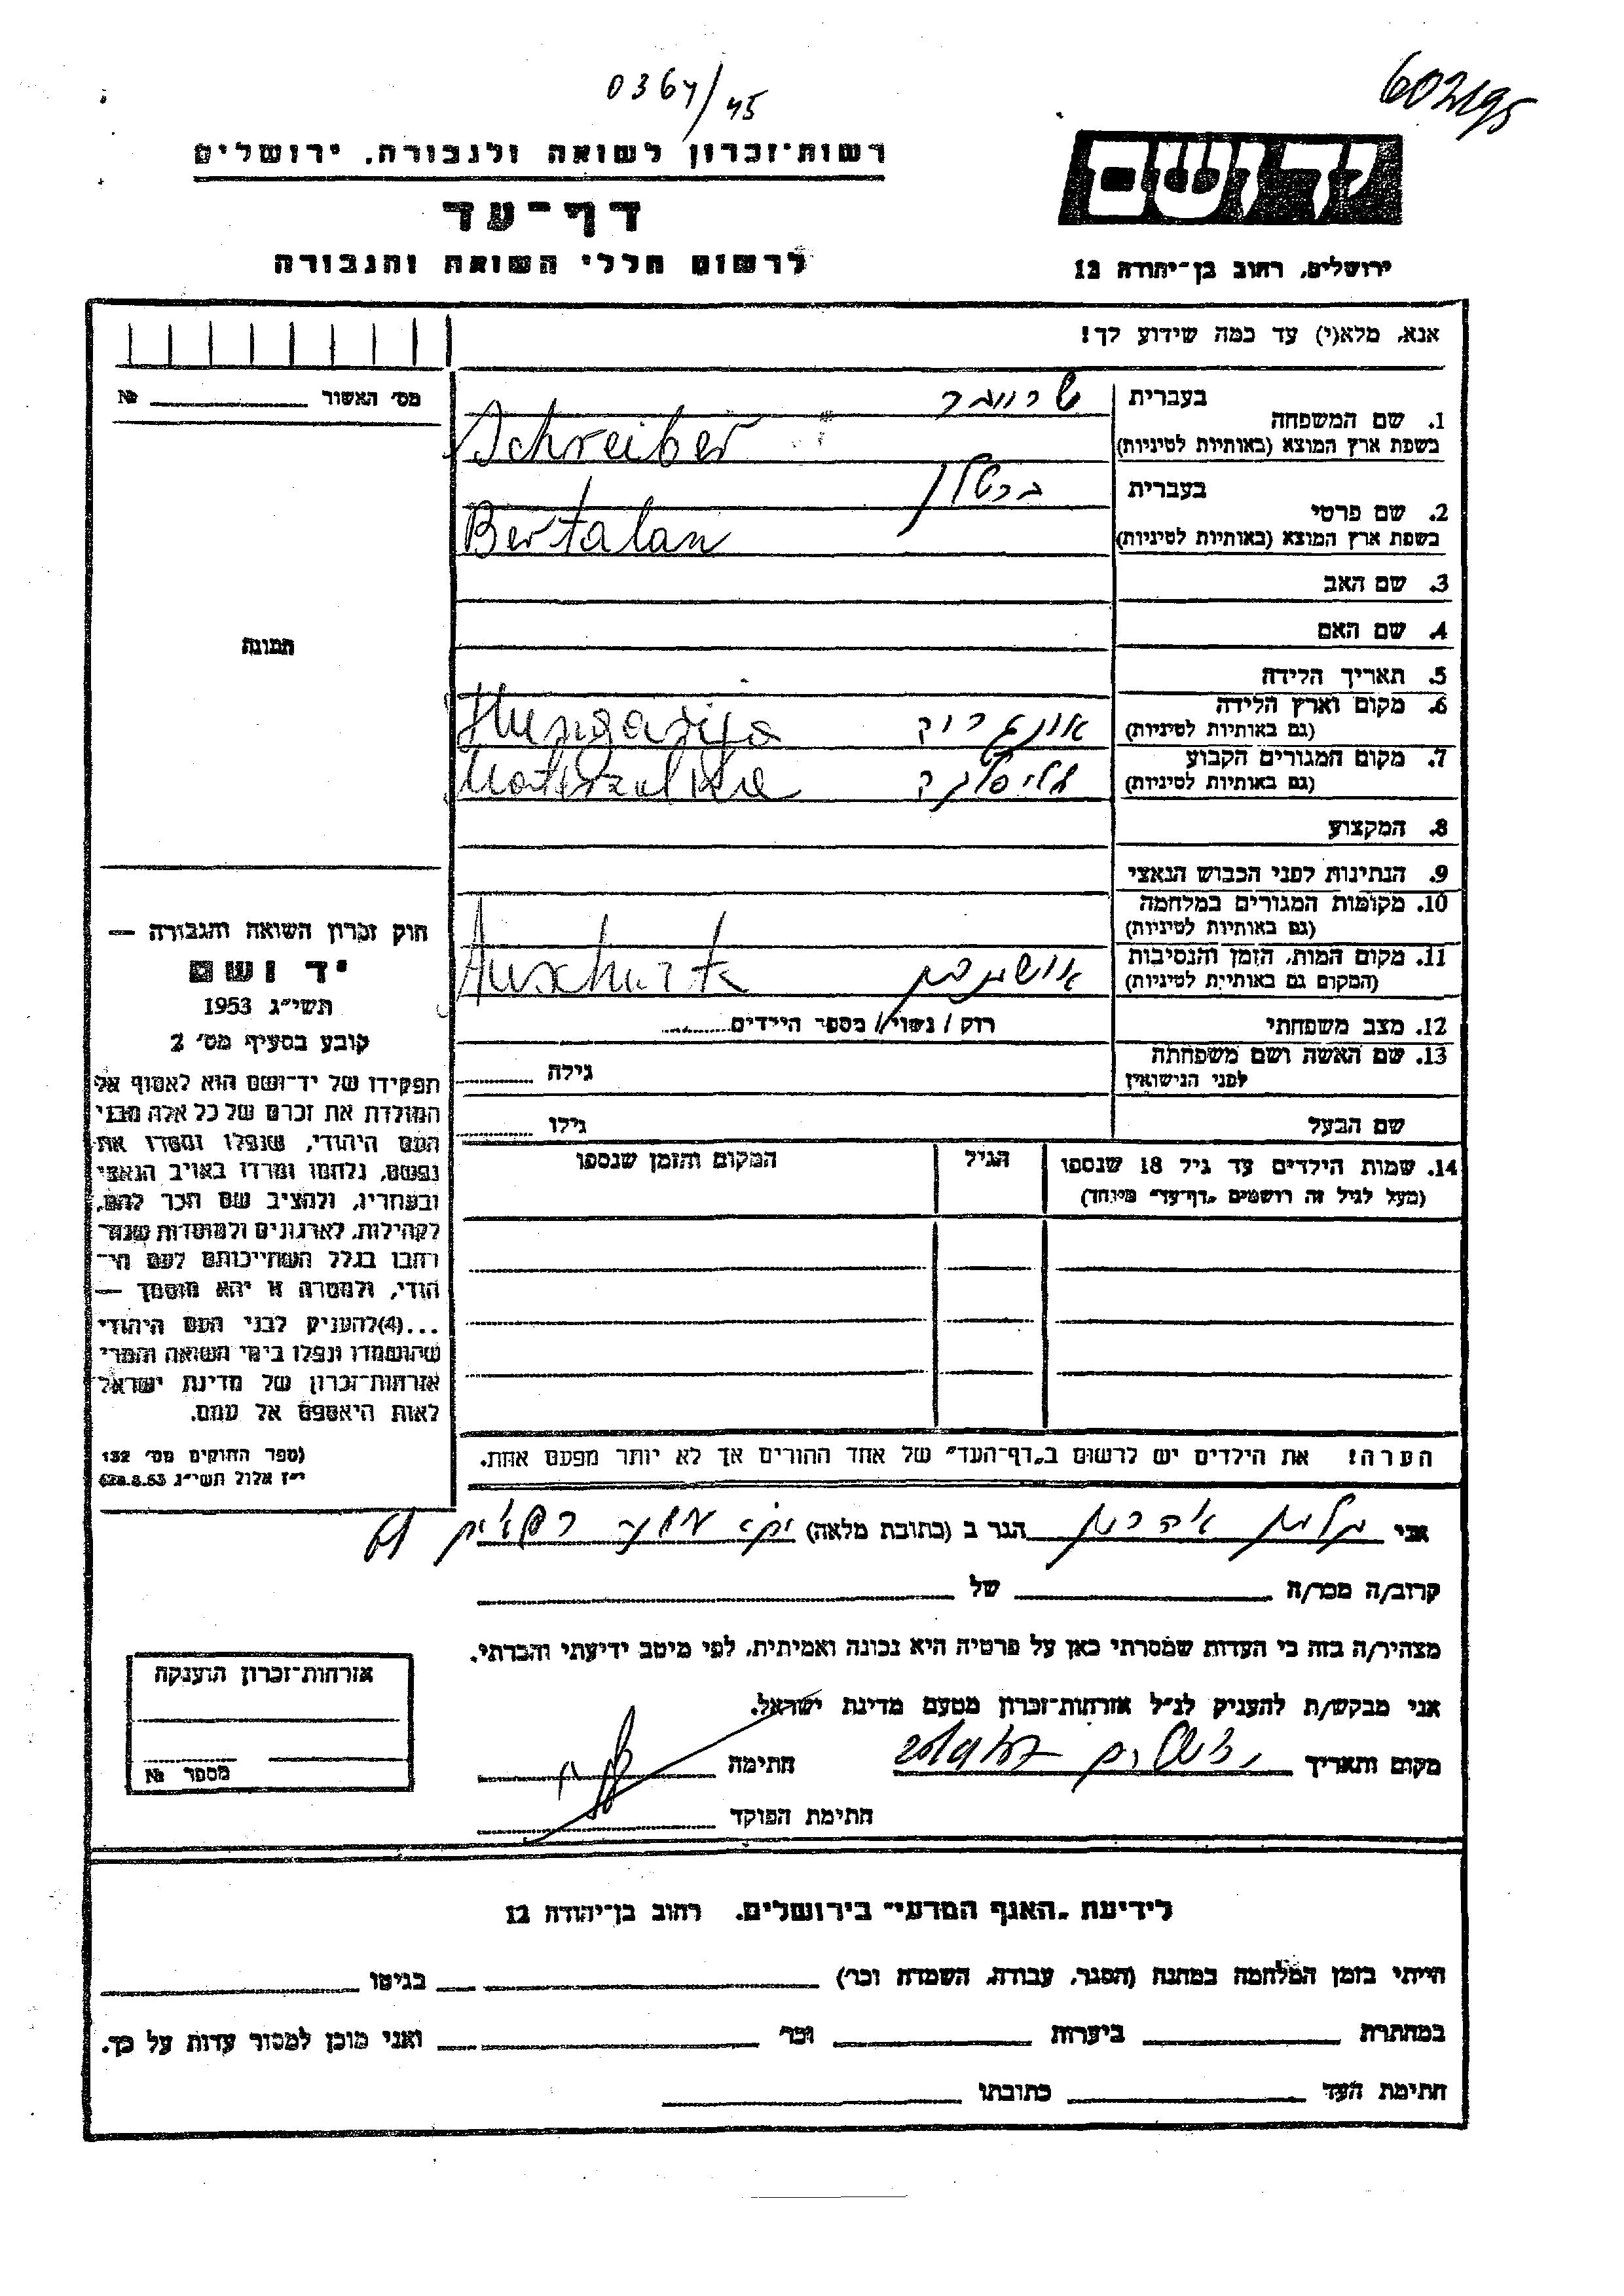 0364/45
602195
רשות־זכרון לשואה ולגבורה, ירושלים
דף־עד
לרשום חללי השואה והגבורה
יד ושם
ירושלים, רחוב בן־יהודה 12
אנא, מלא(י) עד כמה שידוע לך!
מס׳ האשור № 
1. שם המשפחה
בעברית
שרייבר
בשפת ארץ המוצא (באותיות לטיניות)
Schreiber
2. שם פרטי
בעברית
ברטלן
בשפת ארץ המוצא (באותיות לטיניות)
Bertalan
3. שם האב
4. שם האם
תמונה
5. תאריך הלידה
6. מקום וארץ הלידה
(גם באותיות לטיניות)
Hungarija
7. מקום המגורים הקבוע
(גם באותיות לטיניות)
8. המקצוע
9. הנתינות לפני הכבוש הנאצי
10. מקומות המגורים במלחמה
(גם באותיות לטיניות)
11. מקום המות, הזמן והנסיבות
(המקום גם באותיות לטיניות)
12. מצב משפחתי
רוק / נשוי / מספר הילדים
13. שם האשה ושם משפחתה
לפני הנישואין
גילה
שם הבעל
גילו
14. שמות הילדים עד גיל 18 שנספו
(מעל לגיל זה רושמים „דף־עד״ מיוחד)
הגיל
המקום והזמן שנספו
חוק זכרון השואה והגבורה —
יד ושם
תשי״ג 1953
קובע בסעיף מס׳ 2
תפקידו של יד־ושם הוא לאסוף אל
המולדת את זכרם של כל אלה מבני
העם היהודי, שנפלו ומסרו את
נפשם, נלחמו ומרדו באויב הנאצי
ובעוזריו, ולהציב שם וזכר להם,
לקהילות, לארגונים ולמוסדות שנח־
רבו בגלל השתייכותם לעם הי־
הודי, ולמטרה זו יהא מוסמך —
...(4)להעניק לבני העם היהודי
שהושמדו ונפלו בימי השואה והמרי
אזרחות־זכרון של מדינת ישראל
לאות היאספם אל עמם.
(ספר החוקים מס׳ 132
י״ז אלול תשי״ג 28.8.53)
הערה! את הילדים יש לרשום ב„דף־העד״ של אחד ההורים אך לא יותר מפעם אחת.
אני
הגר ב (כתובת מלאה)
קרוב/ה מכר/ה של
מצהיר/ה בזה כי העדות שמסרתי כאן על פרטיה היא נכונה ואמיתית, לפי מיטב ידיעתי והכרתי.
אני מבקש/ת להעניק לנ״ל אזרחות־זכרון מטעם מדינת ישראל.
מקום ותאריך
חתימה
חתימת הפוקד
אזרחות־זכרון הוענקה
מספר №
לידיעת „האגף המדעי״ בירושלים, רחוב בן־יהודה 12
הייתי בזמן המלחמה במחנה (הסגר, עבודה, השמדה וכו׳) בגיטו
במחתרת ביערות וכו׳ ואני מוכן למסור עדות על כך.
חתימת העד כתובתו